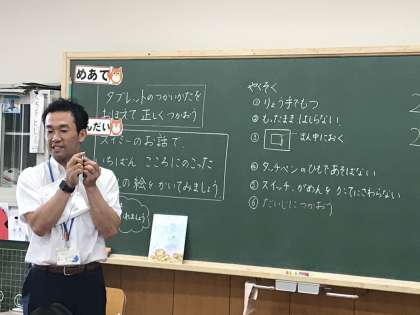 めあて
タブレットのつかいかたを
おぼえて 正しく つかおう
んだい
スイミーのお話で、
いちばん こころにのこった
の絵をかいてみましょう。
れましょう
やくそく
① りょう手でもつ
② もったまま はしらない
③ まん中におく
④ タッチペンのひもであそばない
⑤ スイッチ、がめんを かってにさわらない
⑥ だいじにつかおう